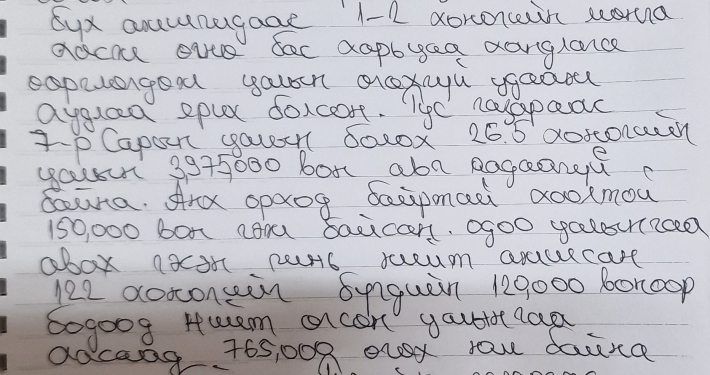 бух ажилчидаас 1-2 хоногийн монга
хасж өгнө бас харьцаа хандлага
өөрчлөгдөж цалин өгөхгүй удааж
худлаа ярих болсон. Тус газараас
7-р Сарын цалин болох 26.5 хоногийн
цалин 3,975,000 вон авч чадаагүй
байна. Анх ороход байртай хоолтой
150,000 вон гэж байсан. одоо цалингаа
авах гэсэн чинь нийт ажилсан
122 хоногийн бүгдийн 120,000 воноор
бодоод Нийт өгсөн цалингаа
хасаад 765,000 өгөх юм байна